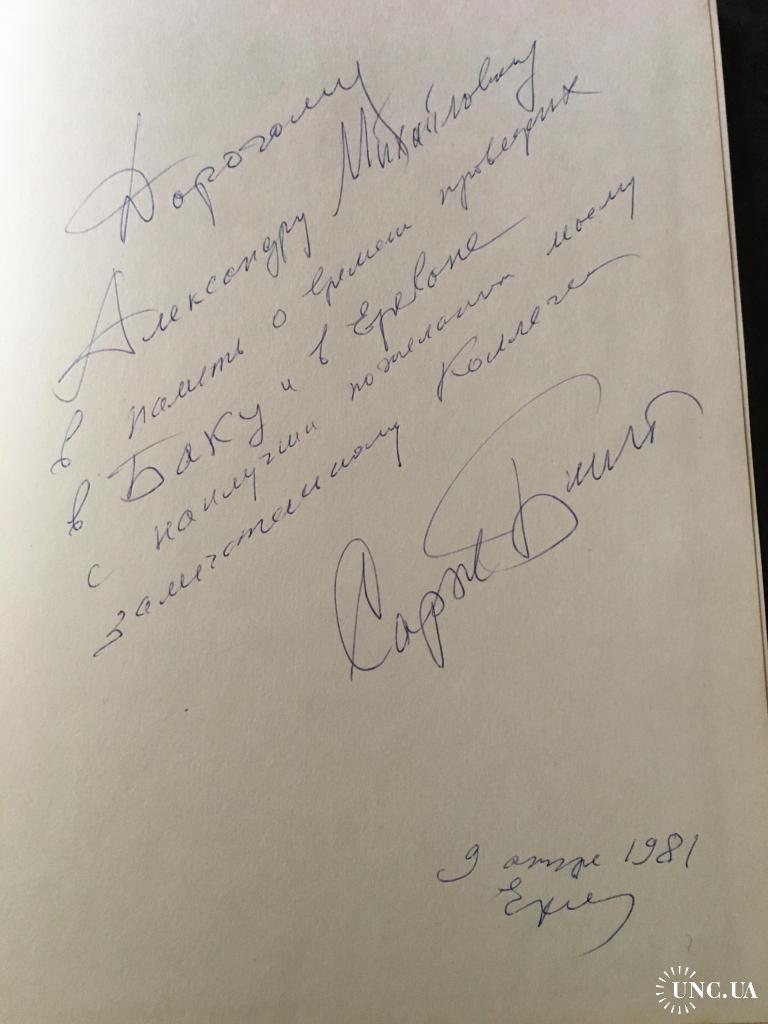 Дорогому
Александру Михайловичу
в память о времени проведених
в Баку и в Ереване
с наилучши пожелания моему
замечательному Коллеге
9 1981
UNC.UA